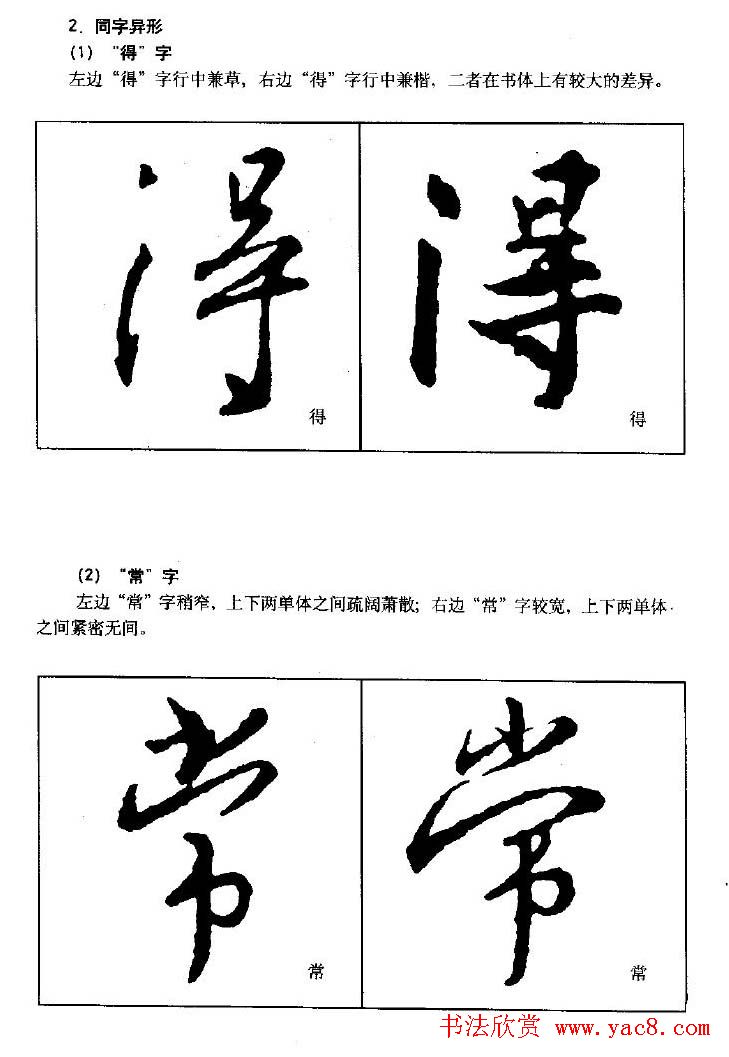 2. 同字异形
(1) “得”字
左边“得”字行中兼草，右边“得”字行中兼楷，二者在书体上有较大的差异。
得 得
得 得
(2) “常”字
左边“常”字稍窄，上下两单体之间疏阔萧散；右边“常”字较宽，上下两单体
之间紧密无间。
常 常
常 常
书法欣赏 www.yac8.com